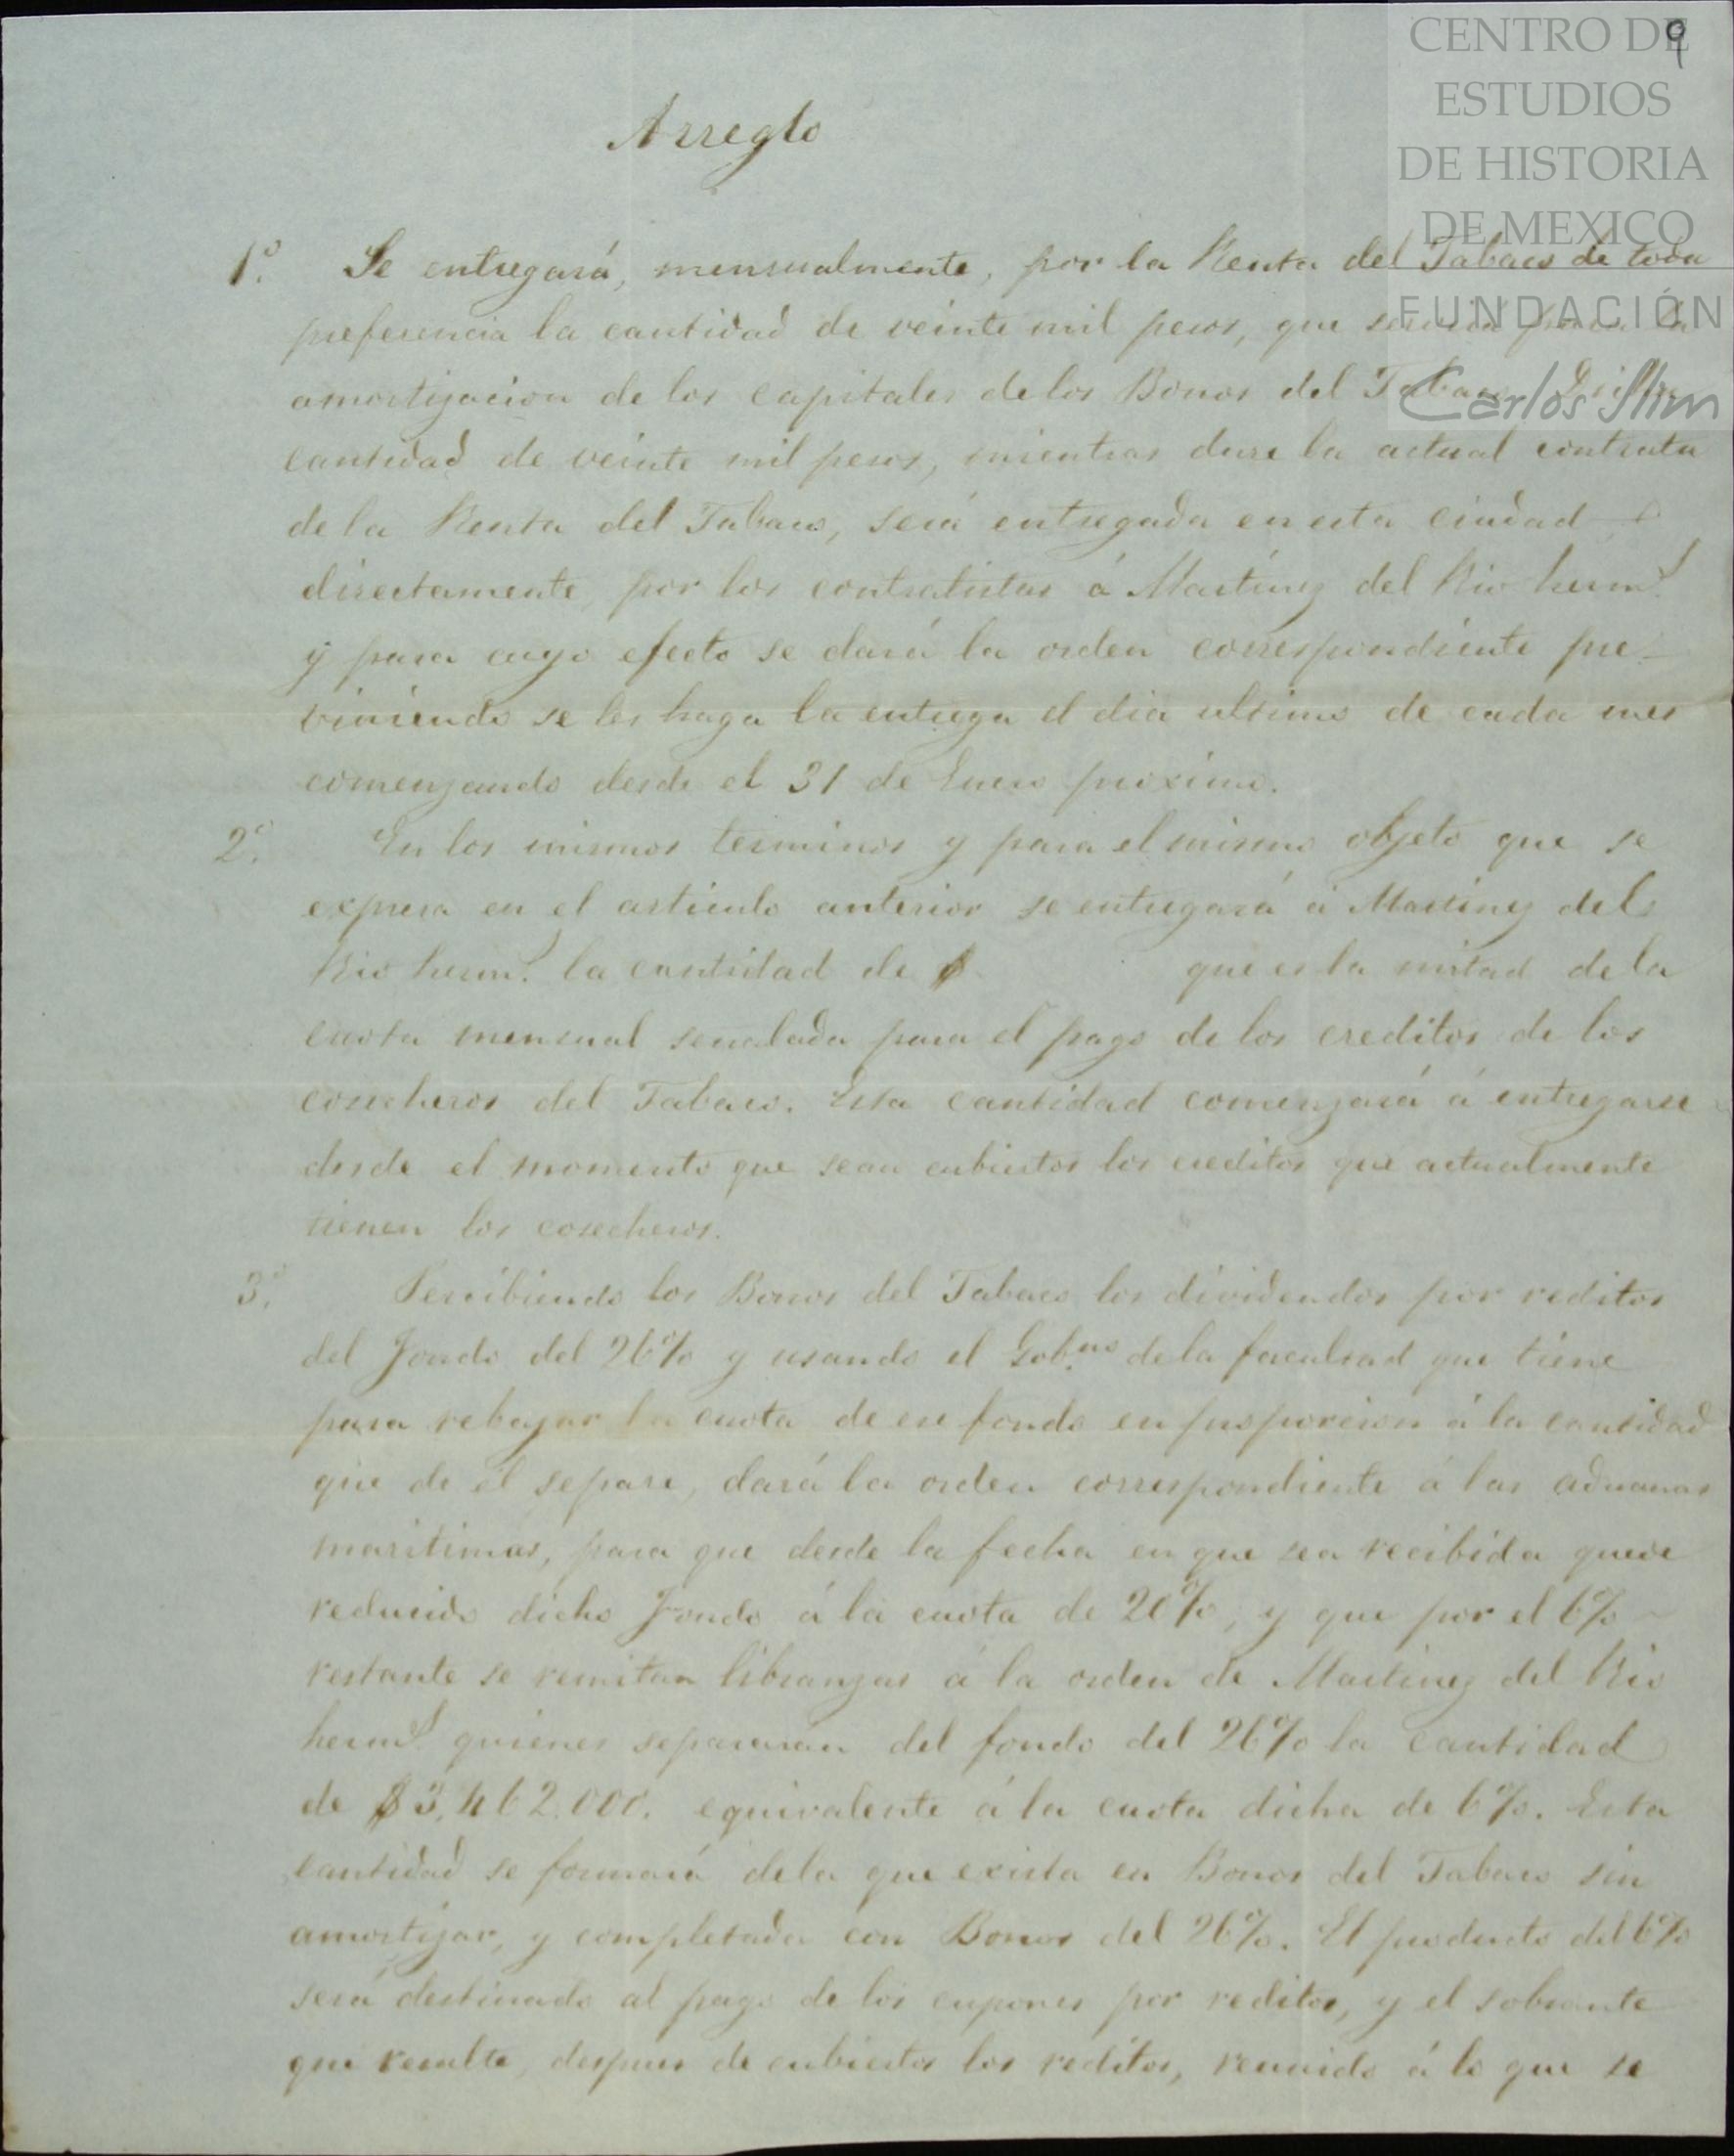 CENTRO DE
ESTUDIOS
DE HISTORIA
DE MEXICO
FUNDACIÓN
Carlos Slim
9
Arreglo
1º. Se entregará, mensualmente, por la Renta del Tabaco de toda
preferencia la cantidad de veinte mil pesos, que servirá para la
amortizacion de los capitales de los Bonos del Tabaco. Dicha
cantidad de veinte mil pesos, mientras dure la actual contrata
de la Renta del Tabaco, será entregada en esta ciudad, é
directamente, por los contratistas á Martinez del Rio herms.
y para cuyo efecto se dará la orden correspondiente pre-
viniendo se les haga la entrega el dia ultimo de cada mes
comenzando desde el 31 de Enero proximo.
2º. En los mismos terminos y para el mismo objeto que se
expresa en el articulo anterior se entregará á Martinez del
Rio herms. la cantidad de $ que es la mitad de la
cuota mensual senalada para el pago de los creditos de los
cosecheros del Tabaco. Esta cantidad comenzará á entregarse
desde el momento que sean cubiertos los creditos que actualmente
tienen los cosecheros.
3º. Percibiendo los Bonos del Tabaco los dividendos por reditos
del Fondo del 26% y usando el Gob.no de la facultad que tiene
para rebajar la cuota de ese fondo en proporcion á la cantidad
que de él separe, dará la orden correspondiente á las aduanas
maritimas, para que desde la fecha en que sea recibida quede
reducido dicho Fondo á la cuota de 20%, y que por el 6%
restante se remitan libranzas á la orden de Martinez del Rio
herms. quienes separaran del fondo del 26% la cantidad
de $3,462.000. equivalente á la cuota dicha de 6%. Esta
cantidad se formará de la que exista en Bonos del Tabaco sin
amortizar, y completada con Bonos del 26%. El producto del 6%
será destinado al pago de los cupones por reditos, y el sobrante
que resulte, despues de cubiertos los reditos, reunido á lo que se